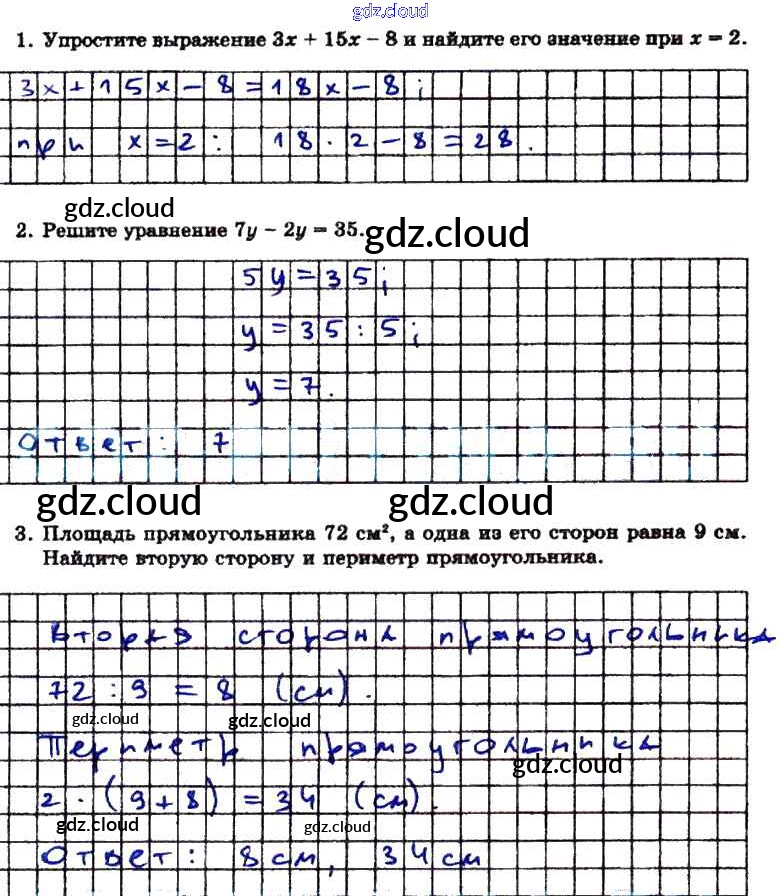 gdz.cloud
1. Упростите выражение 3x + 15x − 8 и найдите его значение при x = 2.
3x+15x−8=18x−8;
при x=2: 18·2−8=28.
gdz.cloud
2. Решите уравнение 7y − 2y = 35.
gdz.cloud
5y=35;
y=35:5;
y=7.
Ответ: 7
gdz.cloud gdz.cloud
3. Площадь прямоугольника 72 см², а одна из его сторон равна 9 см.
Найдите вторую сторону и периметр прямоугольника.
Вторая сторона прямоугольника
72:9=8 (см).
gdz.cloud gdz.cloud
Периметр прямоугольника
gdz.cloud
2·(9+8)=34 (см).
gdz.cloud gdz.cloud
Ответ: 8см, 34см